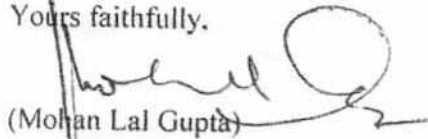 Yours faithfully.
(Mohan Lal Gupta)